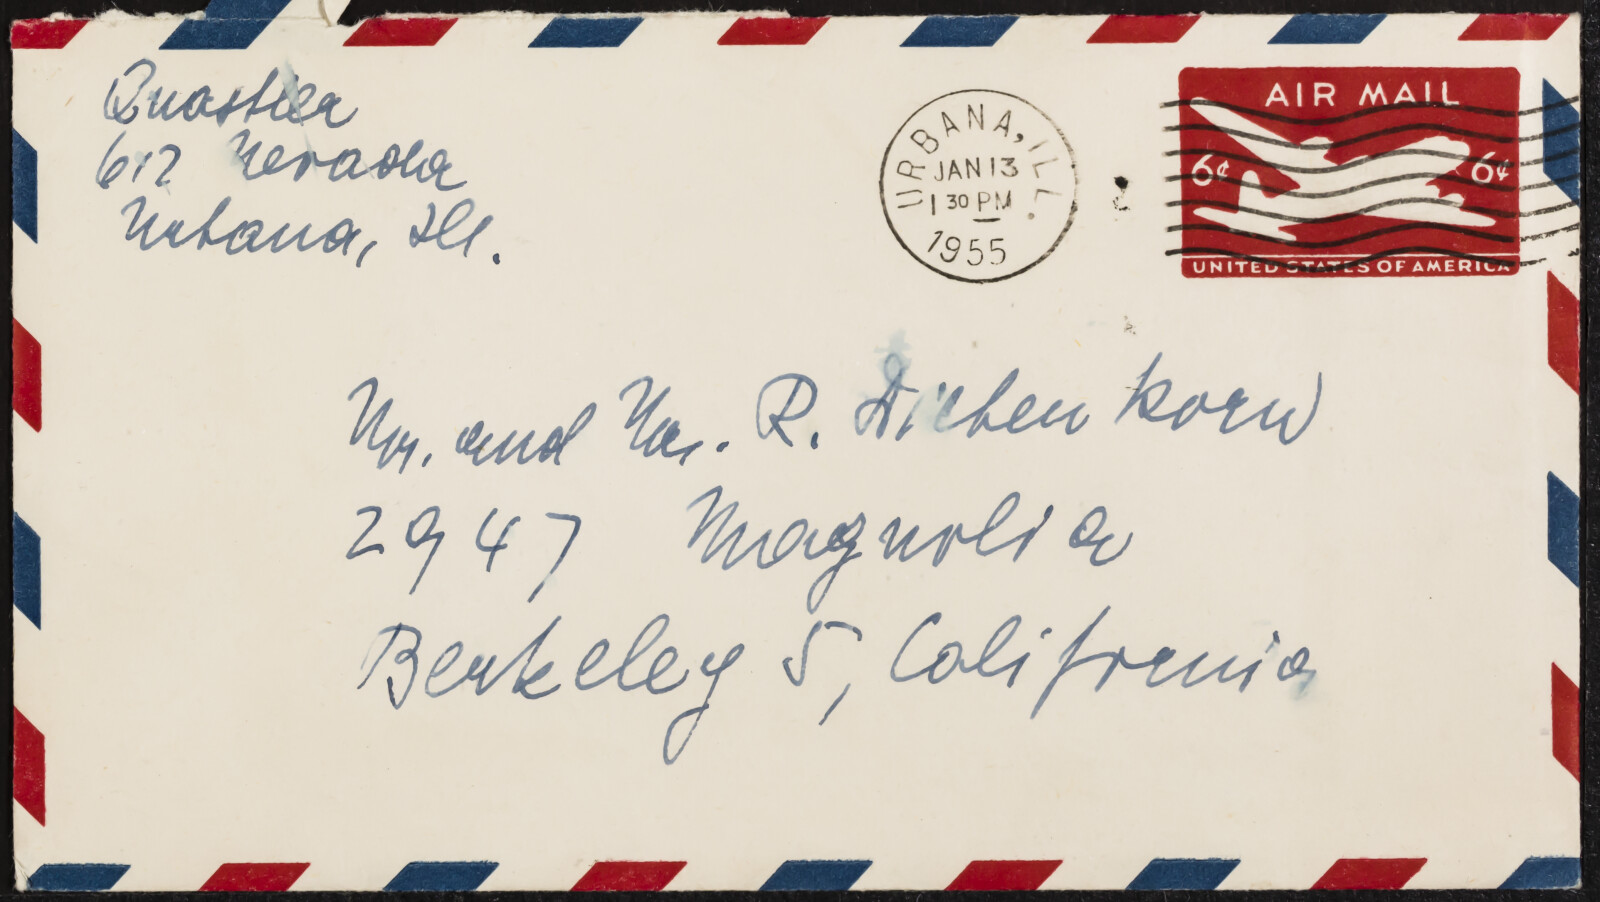 Quastler
612 Nevada
Urbana, Ill.
URBANA, ILL.
JAN 13
1 30 PM
1955
AIR MAIL
6¢ 6¢
UNITED STATES OF AMERICA
Mr. and Mrs. R. Diebenkorn
2947 Magnolia
Berkeley 5, California